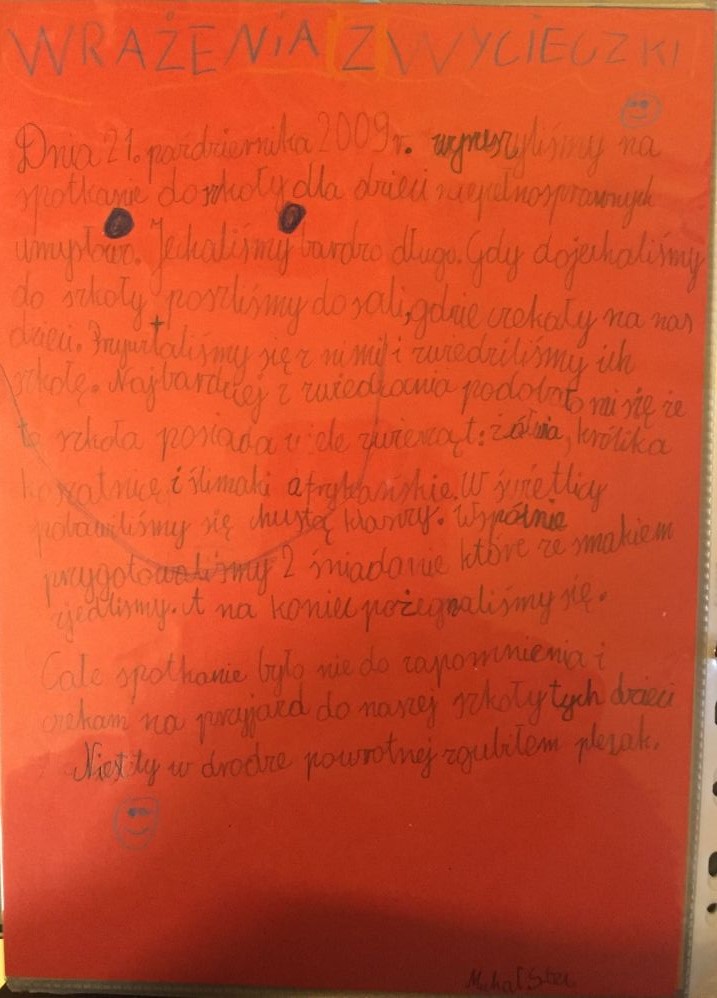 WRAŻENIA Z WYCIECZKI
Dnia 21. pazdziernika 2009r. wyruszyliśmy na
spotkanie do szkoły dla dzieci niepełnosprawnych
umysłowo. Jechaliśmy bardzo długo. Gdy dojechaliśmy
do szkoły poszliśmy do sali, gdzie czekały na nas
dzieci. Przywitaliśmy się z nimi i zwiedziliśmy ich
szkołę. Najbardziej z zwiedzania podobało mi się że
ta szkoła posiada wiele zwierząt: żółwia, królika
koszatnicę, i ślimaki afrykańskie. W świetlicy
pobawiliśmy się chustą klanzy. Wspólnie
przygotowaliśmy 2 śniadanie które ze smakiem
zjedlismy. A na koniec pożegnaliśmy się.
Całe spotkanie było nie do zapomnienia i
czekam na przyjazd do naszej szkoły tych dzieci
Niestety w drodze powrotnej zgubiłem plecak.
Michał